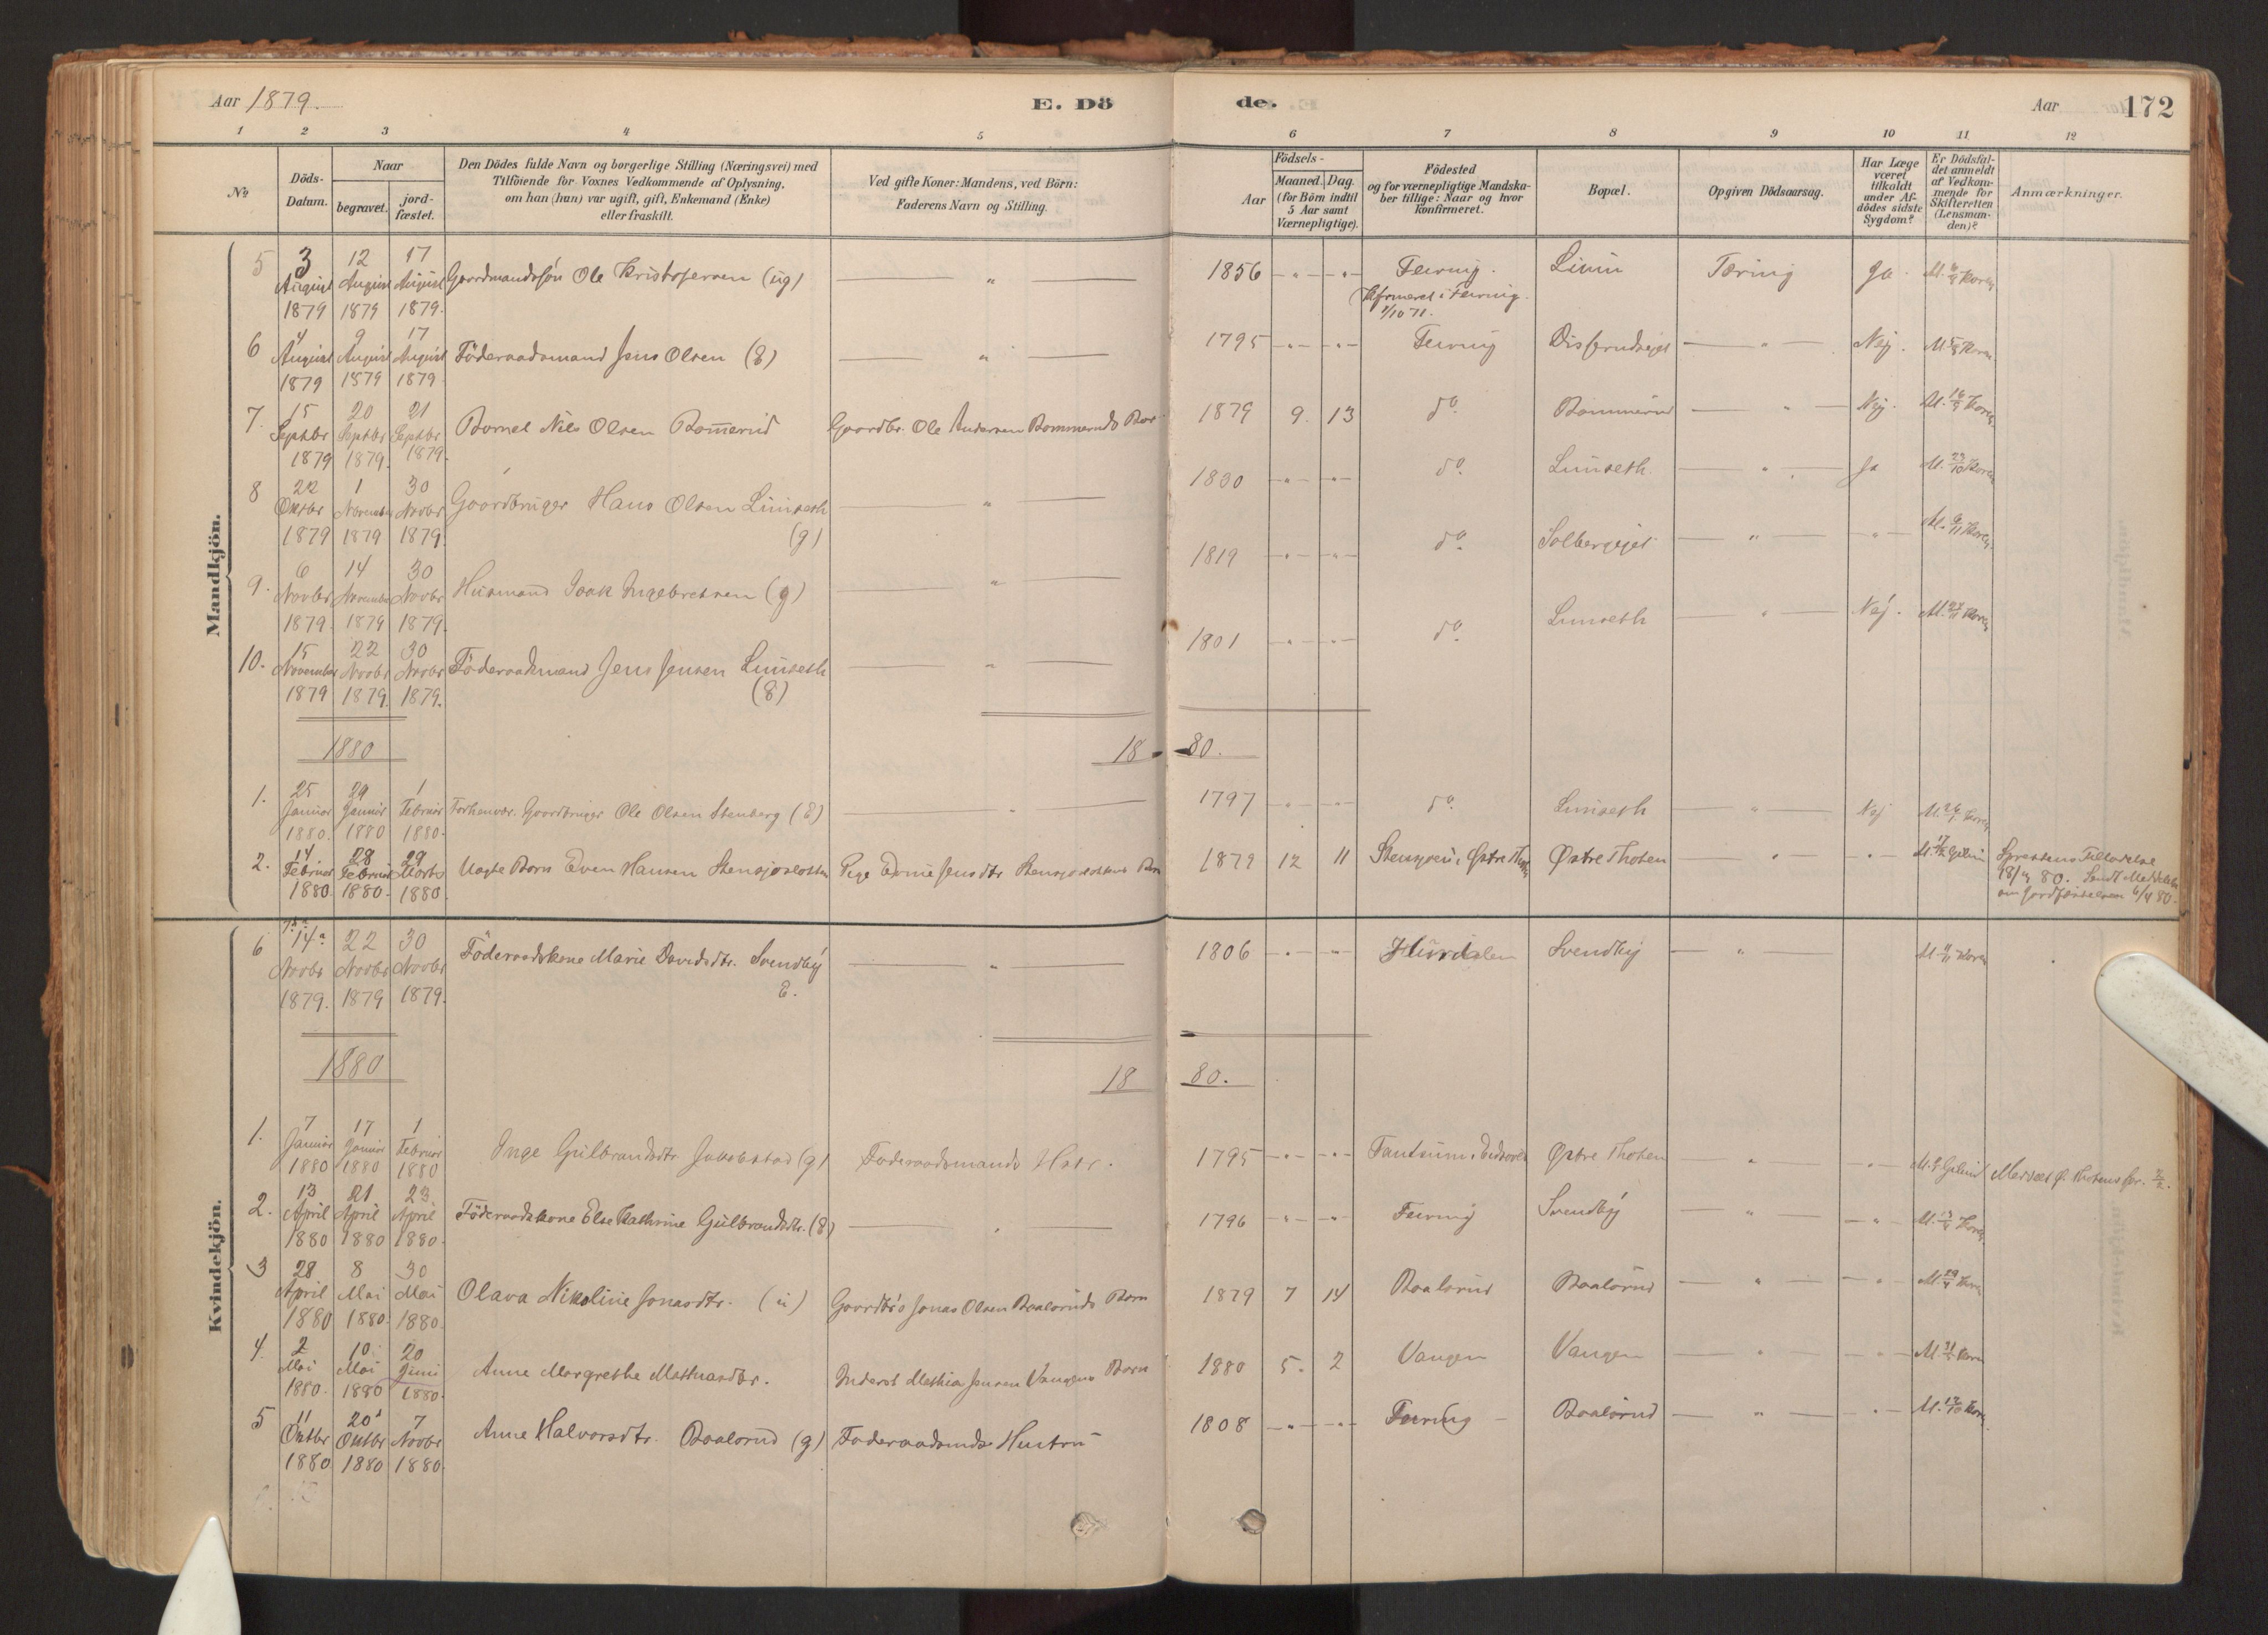 Aar 1879.
E. Dö
de.
Aar
172
1 2 3 4 5 6 7 8 9 10 11 12
No
Döds-Datum.
Naar
begravet.
jord-fæstet.
Den Dödes fulde Navn og borgerlige Stilling (Næringsvei) med
Tilföiende for Voxnes Vedkommende af Oplysning,
om han (hun) var ugift, gift, Enkemand (Enke)
eller fraskilt.
Ved gifte Koner: Mandens, ved Börn:
Faderens Navn og Stilling.
Födsels-
Aar
Maaned. Dag.
(for Börn indtil
5 Aar samt
Værnepligtige).
Födested
og for værnepligtige Mandska-
ber tillige: Naar og hvor
konfirmeret.
Bopæl.
Opgiven Dödsaarsag.
Har Læge
været
tilkaldt
under Af-
dödes sidste
Sygdom?
Er Dödsfal-
det anmeldt
af Vedkom-
mende for
Skifteretten
(Lensman-
den)?
Anmærkninger.
Mandkjön.
5 3 August 1879 12 August 1879 17 August 1879. Gaardmandssön Ole Kristofersen (ug) — " — 1856 - " - - " - Feiring. Lunn Tæring Ja. M.
i Feiring. 1/10 71.
6 4 August 1879 9 August 1879 17 August 1879. Föderaadsmand Jens Olsen (E) — " — 1795 - " - - " - Feiring — " — Nej. M.
7. 15 Septbr 1879 20 Septbr 1879. 21 Septbr 1879. Barnet Nils Olsen Bom̄erud Gaardbr. Ole Andersen Bommeruds Barn 1879 9. 13 do. Bommerud — " — Nej. M.
8 22 Oktbr 1879 1 November 1879 30 Novbr 1879. Gaardbruger Hans Olsen Lunseth (g) — " — 1830 - " - - " - do. Lunseth. — " — Ja M.
9. 6 Novbr 1879. 14 November 1879 30 Novbr 1879. Husmand Isak Ingebretsen (g) — " — 1819 - " - - " - do. Solbergejet — " — - " - M.
10. 15 November 1879 22 Novbr 1879. 30 Novbr 1879. Föderaadsmand Jens Jensen Lunseth (E) — " — 1801 - " - - " - do. Lunseth — " — Nej. M.
1880 18 80.
1. 25 Januar 1880. 29 Januar 1880 1 Februar 1880. Forhenvær. Gaardbruger Ole Olsen Stenberg (E) — " — 1797 - " - - " - do. Lunseth — " — Nej M.
2. 14 Februar 1880. 28 Februar 1880. 29 Marts 1880. Uægte Barn Even Hansen Pige Jensdtr. Barn 1879 12 11 Østre Thoten Østre Thoten — " — - " - M.
80. Sendt
om Jordfæstelsen 6/4 80.
Kvindekjön.
6 14 Novbr 1879. 22 Novbr 1879 30 Novbr 1879. Föderaadskone Marie Davidsdtr. Svendby E. — " — 1806 - " - - " - Hurdalen Svendby — " — M.
1880 18 80.
1. 7 Januar 1880 17 Januar 1880 1 Februar 1880 Inge Gulbrandsdtr. (g) Föderaadsmands Hstr. 1795 - " - - " - Østre Thoten — " — - " - M.
2. 13 April 1880 21 April 1880 23 April 1880. Föderaadskone Else Kathrine Gulbrandsdtr. (E) — " — 1796 - " - - " - Feiring Svendby — " — - " - M.
3 28 April 1880 8 Mai 1880. 30 Mai 1880. Olava Nikoline Jonasdtr. (u) Gaardbr. Jonas Olsen Baaleruds Barn 1879 7 14 Baalerud Baalerud — " — - " - M.
4. 2 Mai 1880. 10. Mai 1880 20 Juni 1880. Anne Margrethe Mathiasdtr. Inderst Mathias Jensen Vangens Barn 1880 5. 2 Vangen Vangen — " — - " - M.
5 11 Oktbr 1880 20 Oktbr 1880 7 Novbr 1880. Anne Halvorsdtr. Baalerud (g) Föderaadsmds Hustru 1808 - " - - " - Feiring - Baalerud — " — - " - M.